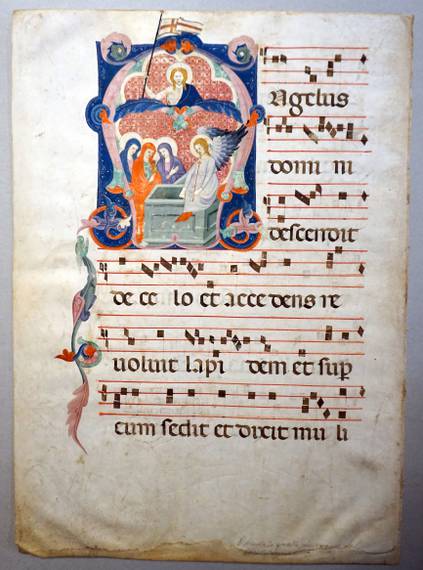 ANgelus
domi ni
descendit
de ce lo et acce dens re
uoluit lapi dem et sup
eum sedit et dixit mu li